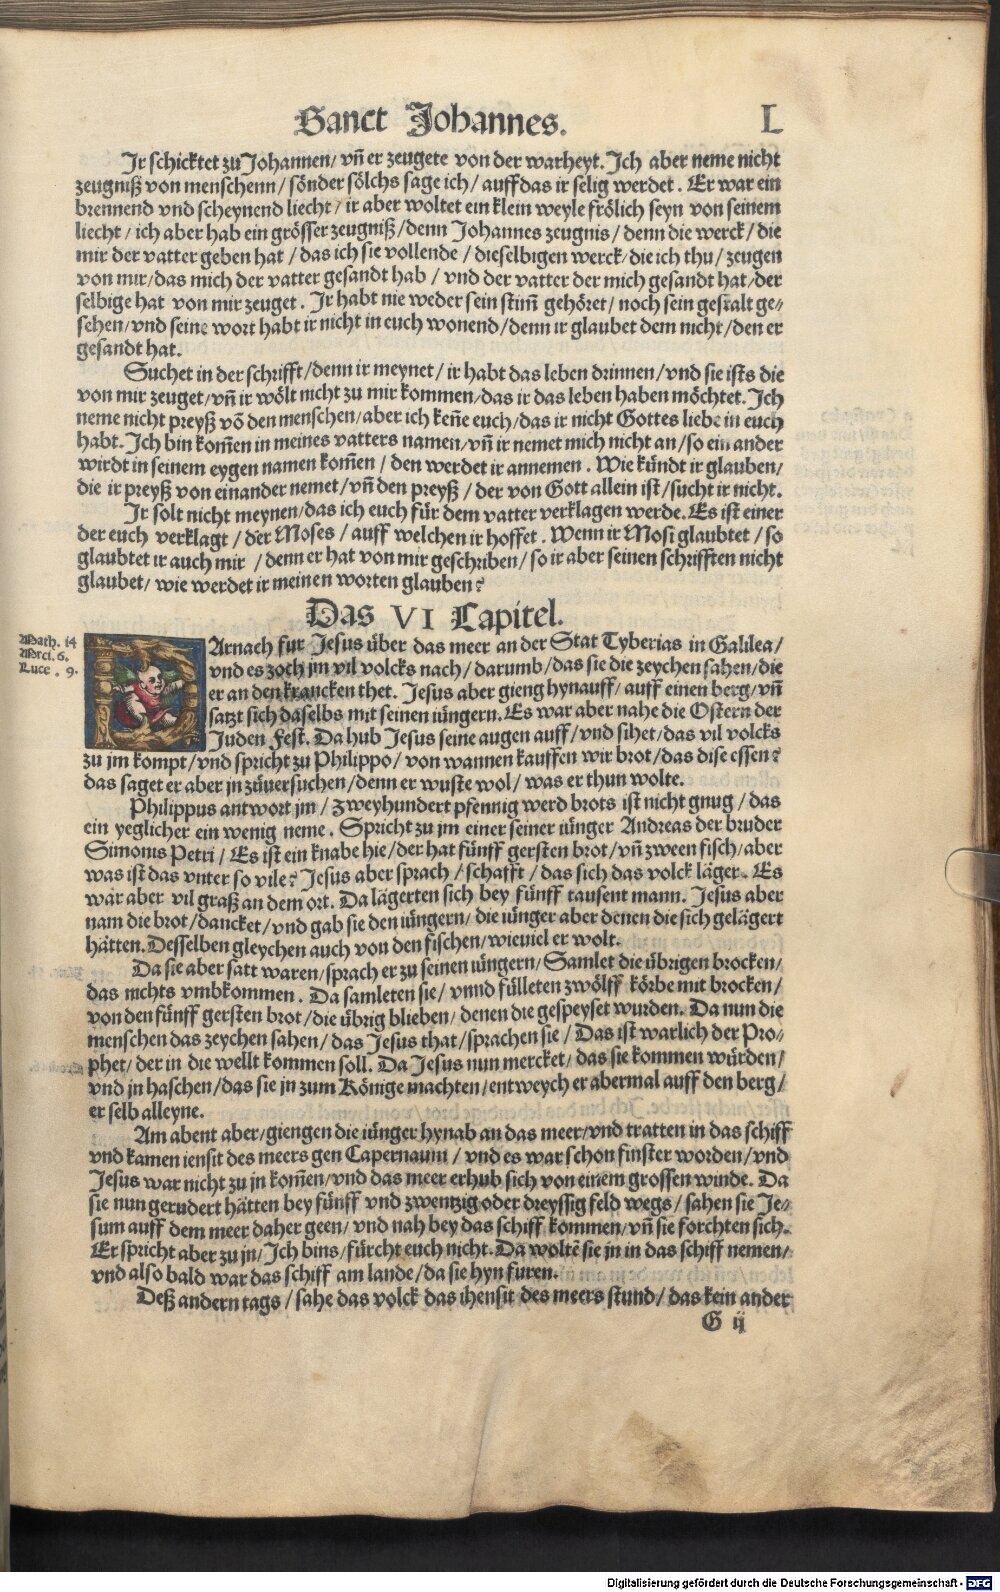 Sanct Johannes. L
Jr schicktet zu Johannen/ vñ er zeugete von der warheyt. Ich aber neme nicht
zeugniß von menschenn/ sönder sölchs sage ich/ auff das ir selig werdet. Er war ein
brennend vnd scheynend liecht/ ir aber woltet ein klein weyle frölich seyn von seinem
liecht/ ich aber hab ein grösser zeugniß/ denn Johannes zeugnis/ denn die werck/ die
mir der vatter geben hat/ das ich sie vollende/ dieselbigen werck/ die ich thu/ zeugen
von mir/ das mich der vatter gesandt hab/ vnd der vatter der mich gesandt hat/ der
selbige hat von mir zeuget. Jr habt nie weder sein stim̃ gehöret/ noch sein gestalt ge-
sehen/ vnd seine wort habt ir nicht in euch wonend/ denn ir glaubet dem nicht/ den er
gesandt hat.
Suchet in der schrifft/ denn ir meynet/ ir habt das leben drinnen/ vnd sie ists die
von mir zeuget/ vñ ir wölt nicht zu mir kommen/ das ir das leben haben möchtet. Ich
neme nicht preyß võ den menschen/ aber ich keñe euch/ das ir nicht Gottes liebe in euch
habt. Ich bin kom̃en in meines vatters namen/ vñ ir nemet mich nicht an/ so ein ander
wirdt in seinem eygen namen kom̃en/ den werdet ir annemen. Wie kündt ir glauben/
die ir preyß von einander nemet/ vñ den preyß/ der von Gott allein ist/ sucht ir nicht.
Jr solt nicht meynen/ das ich euch für dem vatter verklagen werde. Es ist einer
der euch verklagt/ der Moses/ auff welchen ir hoffet. Wenn ir Mosi glaubtet/ so
glaubtet ir auch mir/ denn er hat von mir geschriben/ so ir aber seinen schrifften nicht
glaubet/ wie werdet ir meinen worten glauben?
Das VI Capitel.
Math. 14
Marci. 6.
Luce. 9.
DArnach fur Jesus über das meer an der Stat Tyberias in Galilea/
vnd es zoch jm vil volcks nach/ darumb/ das sie die zeychen sahen/ die
er an den krancken thet. Jesus aber gieng hynauff/ auff einen berg/ vñ
satzt sich daselbs mit seinen iüngern. Es war aber nahe die Ostern der
Juden Fest. Da hub Jesus seine augen auff/ vnd sihet/ das vil volcks
zu jm kompt/ vnd spricht zu Philippo/ von wannen kauffen wir brot/ das dise essen?
das saget er aber jn züuersuchen/ denn er wuste wol/ was er thun wolte.
Philippus antwort jm/ Zweyhundert pfennig werd brots ist nicht gnug/ das
ein yeglicher ein wenig neme. Spricht zu jm einer seiner iünger Andreas der bruder
Simonis Petri/ Es ist ein knabe hie/ der hat fünff gersten brot/ vñ zween fisch/ aber
was ist das vnter so vile? Jesus aber sprach/ schafft/ das sich das volck läger. Es
war aber vil graß an dem ort. Da lägerten sich bey fünff tausent mann. Jesus aber
nam die brot/ dancket/ vnd gab sie den iüngern/ die iünger aber denen die sich gelägert
hätten. Desselben gleychen auch von den fischen/ wieuiel er wolt.
Da sie aber satt waren/ sprach er zu seinen iüngern/ Samlet die übrigen brocken/
das nichts vmbkommen. Da samleten sie/ vnnd fülleten zwölff körbe mit brocken/
von den fünff gersten brot/ die übrig blieben/ denen die gespeyset wurden. Da nun die
menschen das zeychen sahen/ das Jesus that/ sprachen sie/ Das ist warlich der Pro-
phet/ der in die wellt kommen soll. Da Jesus nun mercket/ das sie kommen würden/
vnd jn haschen/ das sie jn zum Könige machten/ entweych er abermal auff den berg/
er selb alleyne.
Am abent aber/ giengen die iünger hynab an das meer/ vnd tratten in das schiff
vnd kamen iensit des meers gen Capernaum/ vnd es war schon finster worden/ vnd
Jesus war nicht zu jn kom̃en/ vnd das meer erhub sich von einem grossen winde. Da
sie nun gerudert hätten bey fünff vnd zwentzig oder dreyssig feld wegs/ sahen sie Je-
sum auff dem meer daher geen/ vnd nah bey das schiff kommen/ vñ sie forchten sich.
Er spricht aber zu jn/ Ich bins/ fürcht euch nicht. Da woltẽ sie jn in das schiff nemen/
vnd also bald war das schiff am lande/ da sie hyn furen.
Deß andern tags/ sahe das volck das ihensit des meers stund/ das kein ander
G ij
Digitalisierung gefördert durch die Deutsche Forschungsgemeinschaft - DFG